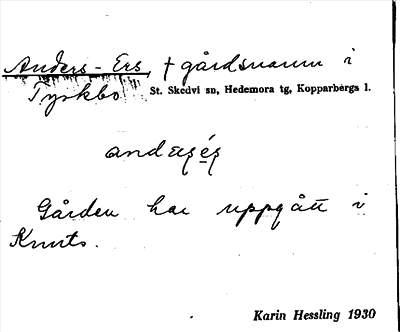 Anders-Ers, † gårdsnamn i
Tyskbo St. Skedvi sn, Hedemora tg, Kopparbergs l.
Gården har uppgått i
Knuts.
Karin Hessling 1930